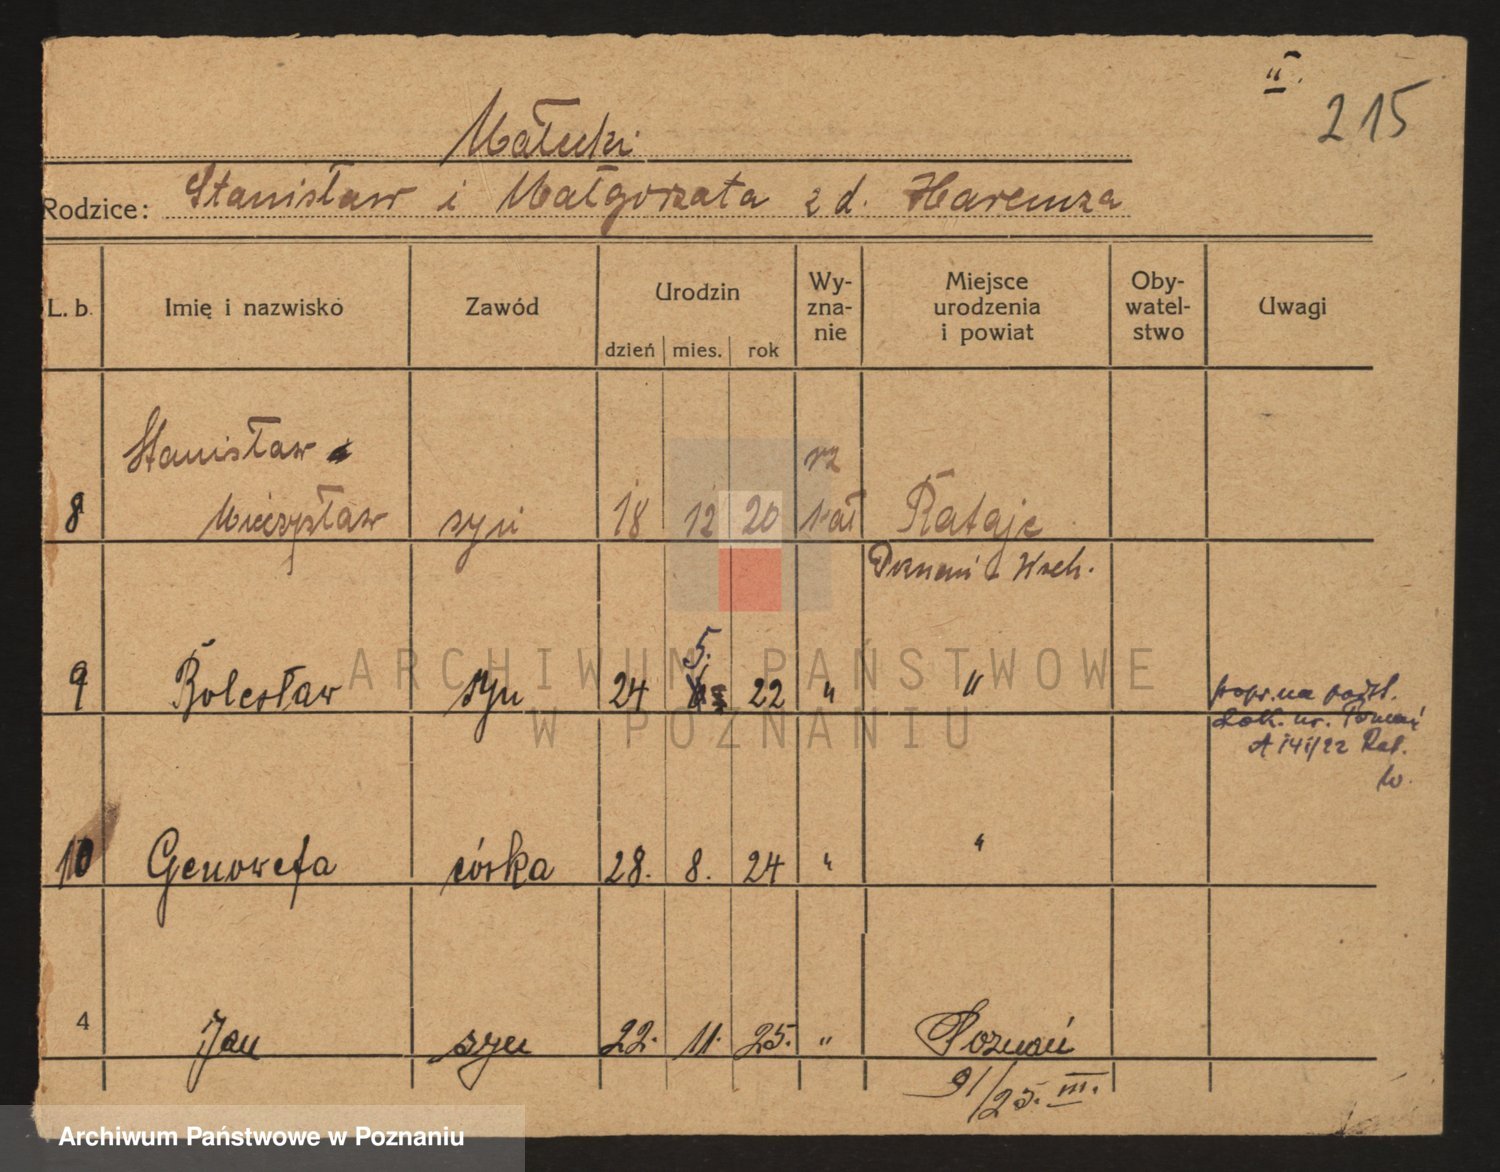 II.
215
Małecki
Rodzice: Stanisław i Małgorzata z d. Haremza
L. b. Imię i nazwisko Zawód Urodzin dzień mies. rok Wyznanie Miejsce urodzenia i powiat Obywatelstwo Uwagi
Stanisław rz
8 Mieczysław syn 18 12 20 kat Rataje
Poznań Wsch.
5.
9 Bolesław syn 24 22 " " popr. na podst.
dok. ur. Poznań
A 141/22 Rat.
10 Genowefa córka 28. 8. 24 " "
4 Jan syn 22. 11. 25. " Poznań
91/25. III.
ARCHIWUM PAŃSTWOWE
W POZNANIU
Archiwum Państwowe w Poznaniu